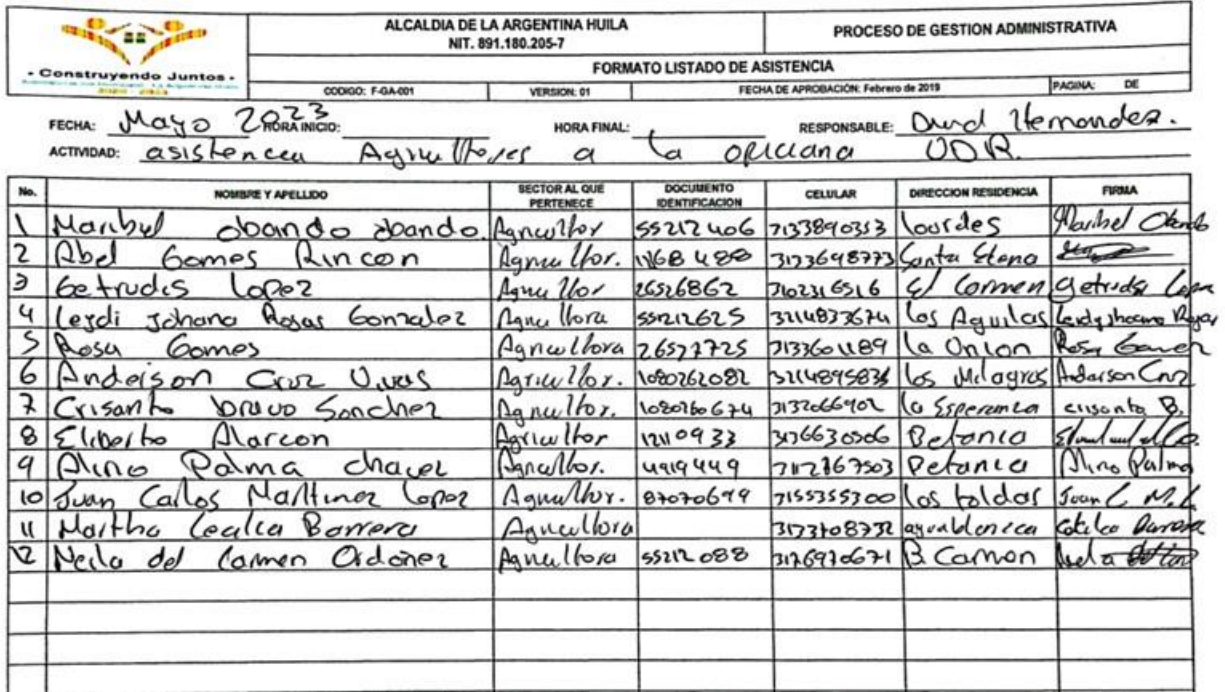 ALCALDIA DE LA ARGENTINA HUILA
NIT. 891.180.205-7
PROCESO DE GESTION ADMINISTRATIVA
• Construyendo Juntos •
FORMATO LISTADO DE ASISTENCIA
CODIGO: F-GA-001 VERSION: 01 FECHA DE APROBACIÓN: Febrero de 2019 PAGINA: DE
FECHA: Mayo 2023 HORA INICIO: HORA FINAL: RESPONSABLE: David Hernandez.
ACTIVIDAD: asistencia Agricultores a la UDR.
No. NOMBRE Y APELLIDO SECTOR AL QUE PERTENECE DOCUMENTO IDENTIFICACION CELULAR DIRECCION RESIDENCIA FIRMA
1 Maribel obando obando. Agricultor 55212406 3133890353 lourdes Maribel Obando
2 Abel Gomes Rincon Agricultor. 3173698773 Santa Elena
3 Getrudis Lopez Agricultor 26526862 3102316516 El Carmen Getrudis Lopez
4 Leydi Johana Rojas Gonzalez Agricultora 55212625 3214833674 Los Aguilas
5 Rosa Gomes Agricultora 26577725 3133601189 La Union Rosa Gomez
6 Anderson Cruz Vivas Agricultor. 1080262082 los Milagros Anderson Cruz
7 Crisanto bravo Sanchez Agricultor. 1080260674 3132066902 la Esperanza crisanto B.
8 Eliberto Alarcon Agricultor 12110933 3136630506 Betania
9 Alino Palma chavez Agricultor. 4919449 3112767503 Betania Alino Palma
10 Juan Carlos Martinez Lopez Agricultor. 87070699 3155355300 los toldos Juan C. M. L
11 Martha Cecilia Borrera Agricultora 3173708732 aguablanca
12 Neila del Carmen Ordoñez Agricultora 55212088 3176970671 B. Carmen